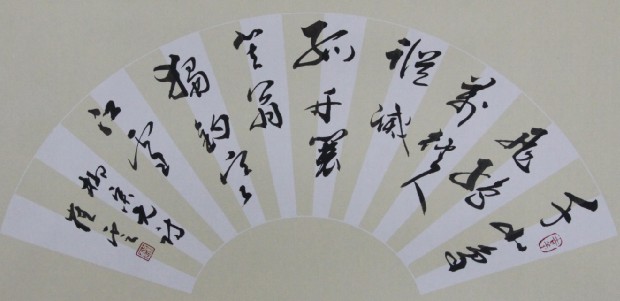 千山鳥
飛絕
萬徑人
蹤滅
孤舟蓑
笠翁
獨釣寒
江雪
柳宗元詩